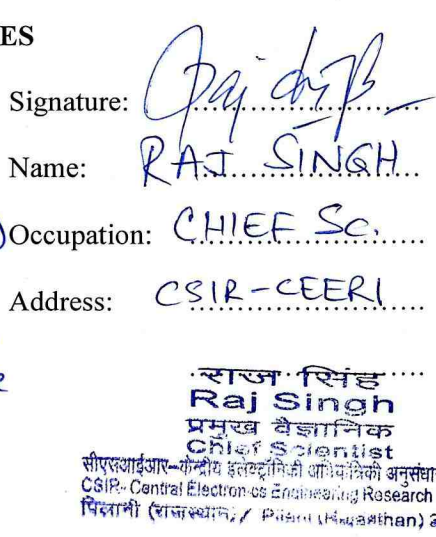 ES
Signature:
Name: RAJ SINGH
Occupation: CHIEF Sc.
Address: CSIR-CEERI
राज सिंह
Raj Singh
प्रमुख वैज्ञानिक
Chief Scientist
सीएसआईआर-केन्द्रीय इलेक्ट्रॉनिकी अभियांत्रिकी अनुसंधा
CSIR- Central Electronics Engineering Research
पिलानी (राजस्थान) / Pilani (Rajasthan)